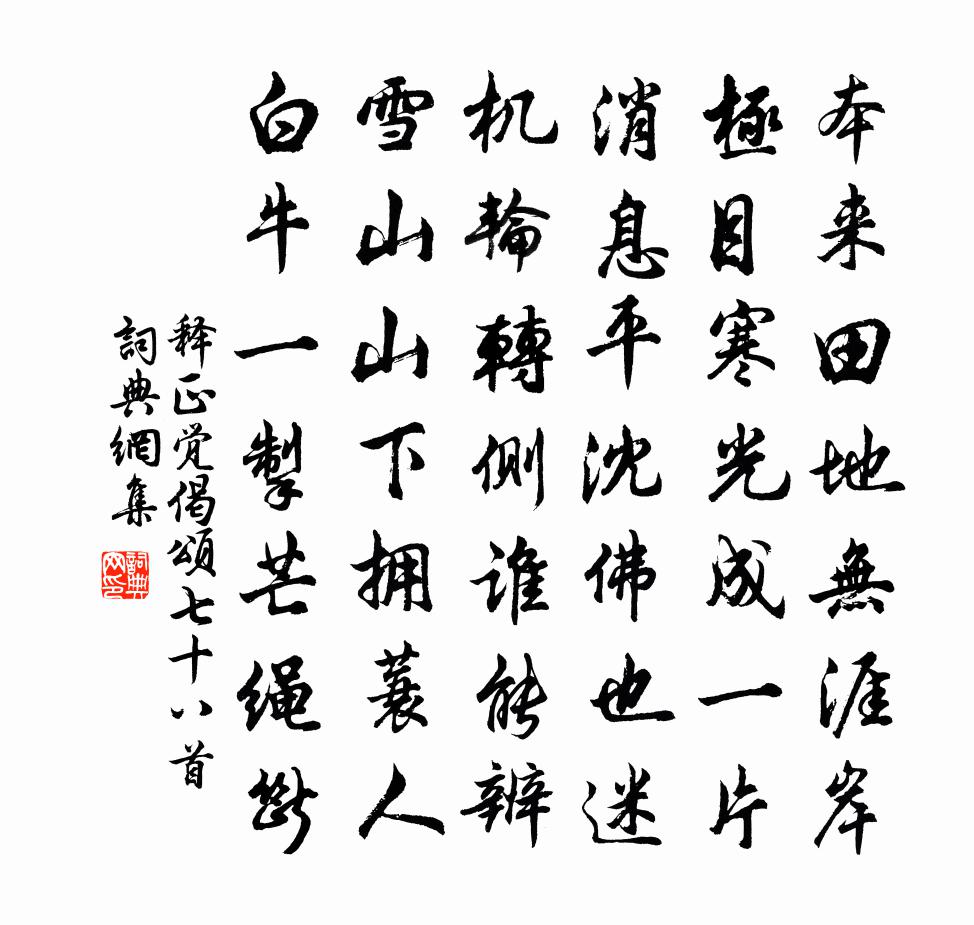 本来田地無涯岸
極目寒光成一片
消息平沈佛也迷
机輪轉側誰能辨
雪山山下拥蓑人
白牛一掣芒绳斷
释正觉偈頌七十八首
詞典網集
詞典网印